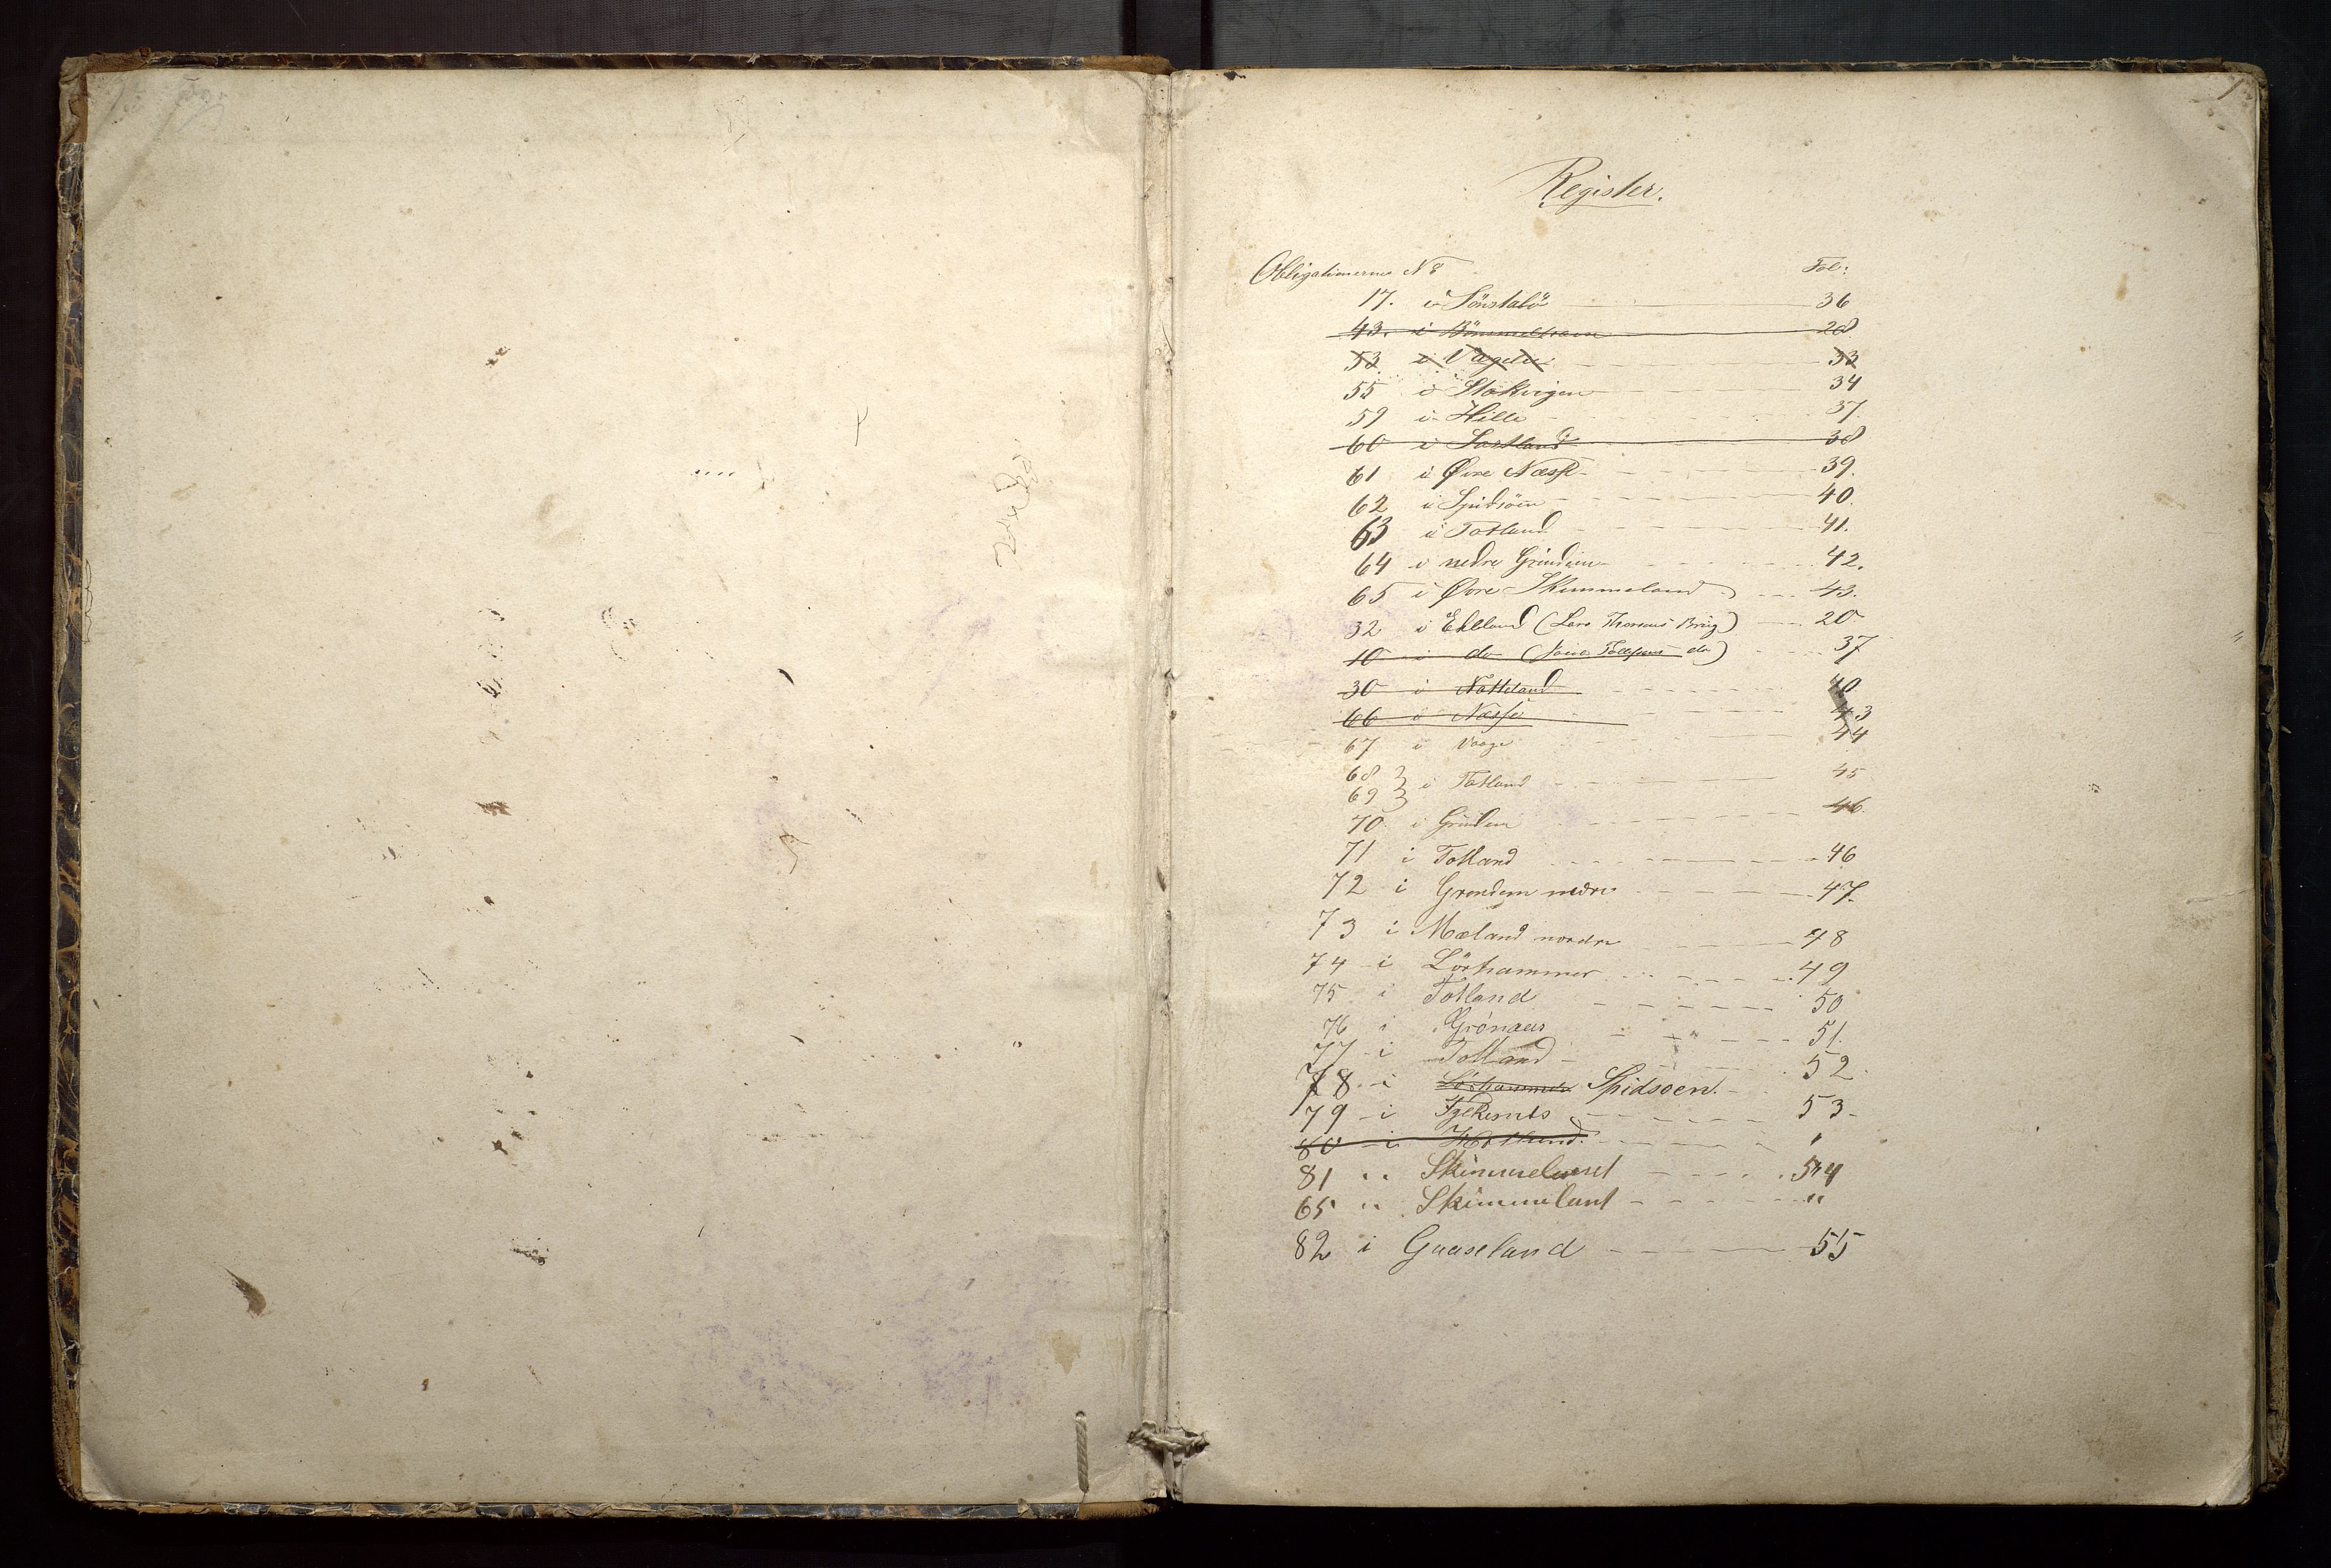 1
Register.
Obligationernes No Fol:
17. i Sönstabö 36
43. i Bömmelhavn 28
53 i Vagele 33
55 i Stokvigen 34
59 i Hille 37
60 i Sortland 38
61 i Øvre Næsse 39.
62 i Spidsöen 40.
63 i Totland 41.
64 i nedre Grindem 42.
65 i Øvre Skimmeland 43.
32 i Ekeland (Lars Thomas Brüg) 20
10 i do ( do) 37
30 i Notteland 40
66 i Næsse 43
67 i Vaage 44
68 } i Totland 45
69 }
70. i Grindem 46.
71 i Totland 46
72 i Grendem nedre 47.
73 i Mæland nordre 48
74 i Lörhammer 49
75 i Totland 50
76 i Grönaas 51.
77 i Totland 52
78 i Lörhammer Spidsoen.
79 i 53
80 i Hovland. "
81 " Skimmelant 54
65 " Skimmelant "
82 i Gaaseland 55